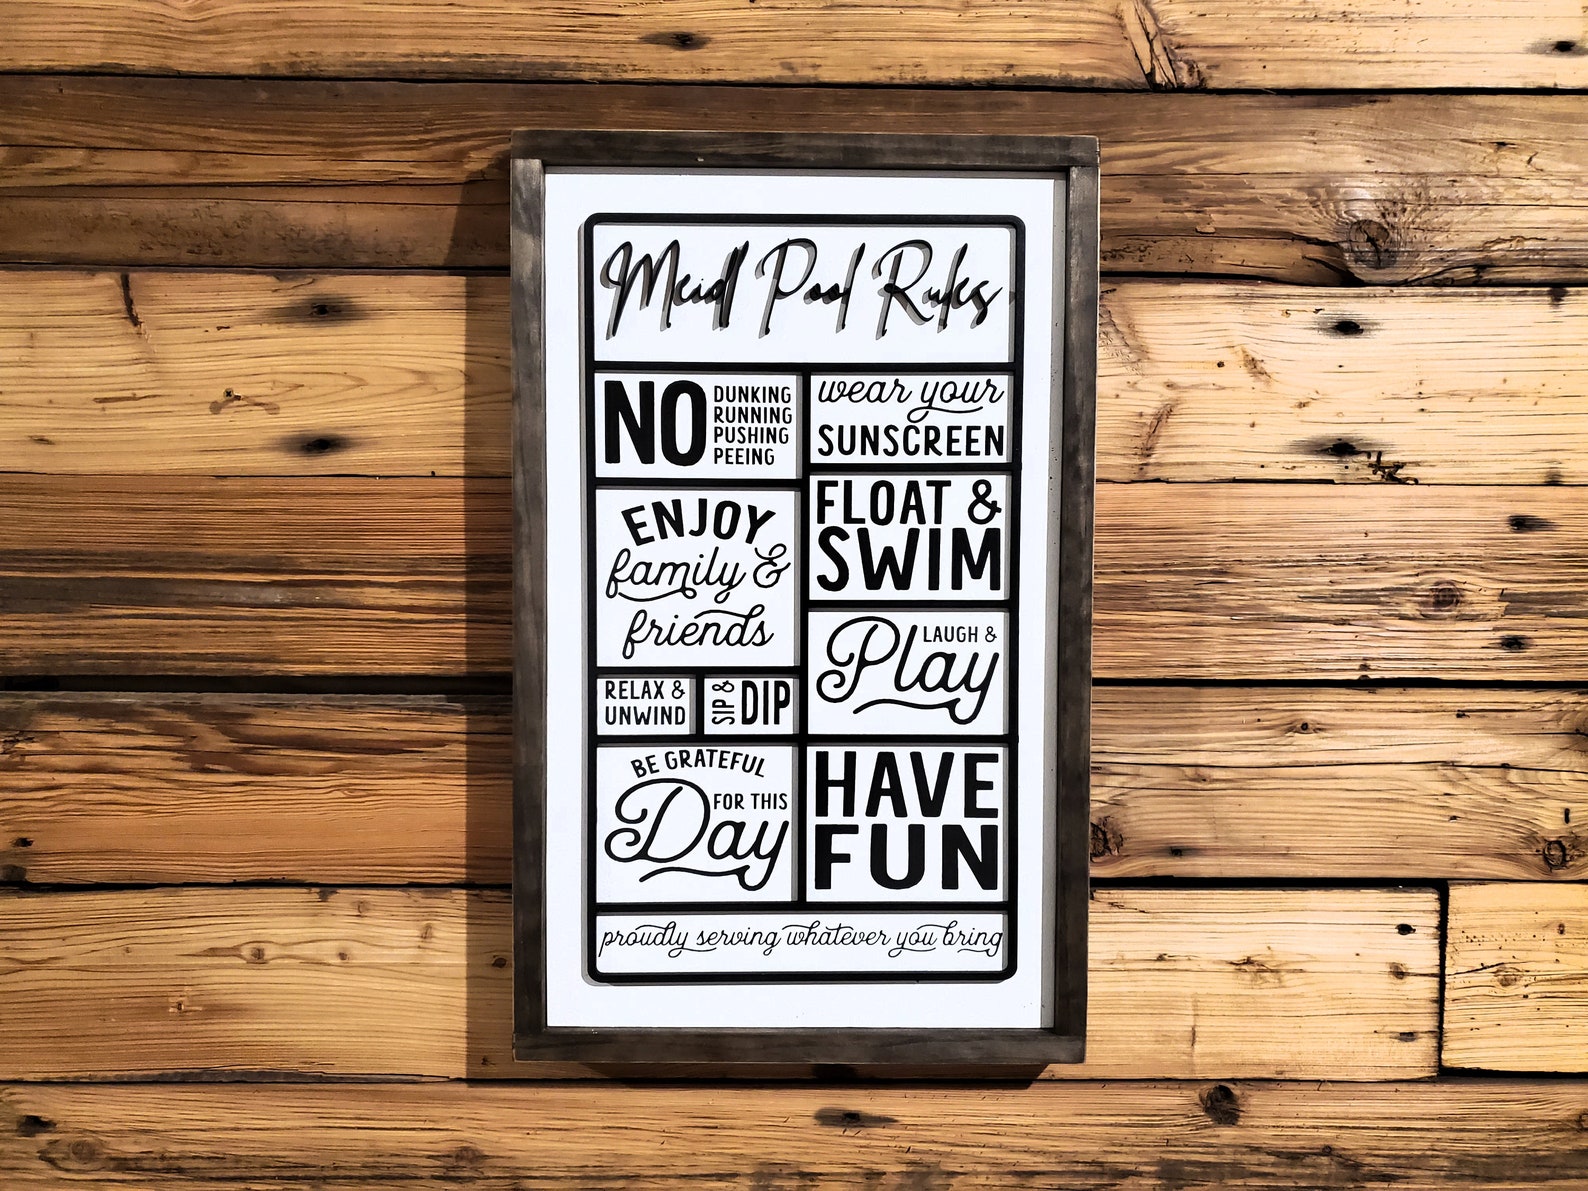 Meidl Pool Rules
NO
DUNKING
RUNNING
PUSHING
PEEING
wear your
SUNSCREEN
ENJOY
family &
friends
FLOAT &
SWIM
LAUGH &
Play
RELAX &
UNWIND
SIP &
DIP
BE GRATEFUL
FOR THIS
Day
HAVE
FUN
proudly serving whatever you bring